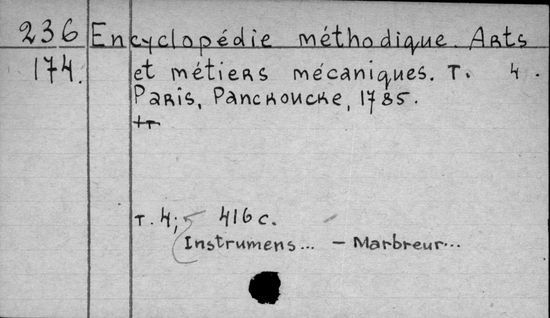 236 Encyclopédie méthodique. Arts
174. et métiers mécaniques. T. 4.
Paris, Panckoucke, 1785.
т. 4; 416 c.
Instrumens... – Marbreur...